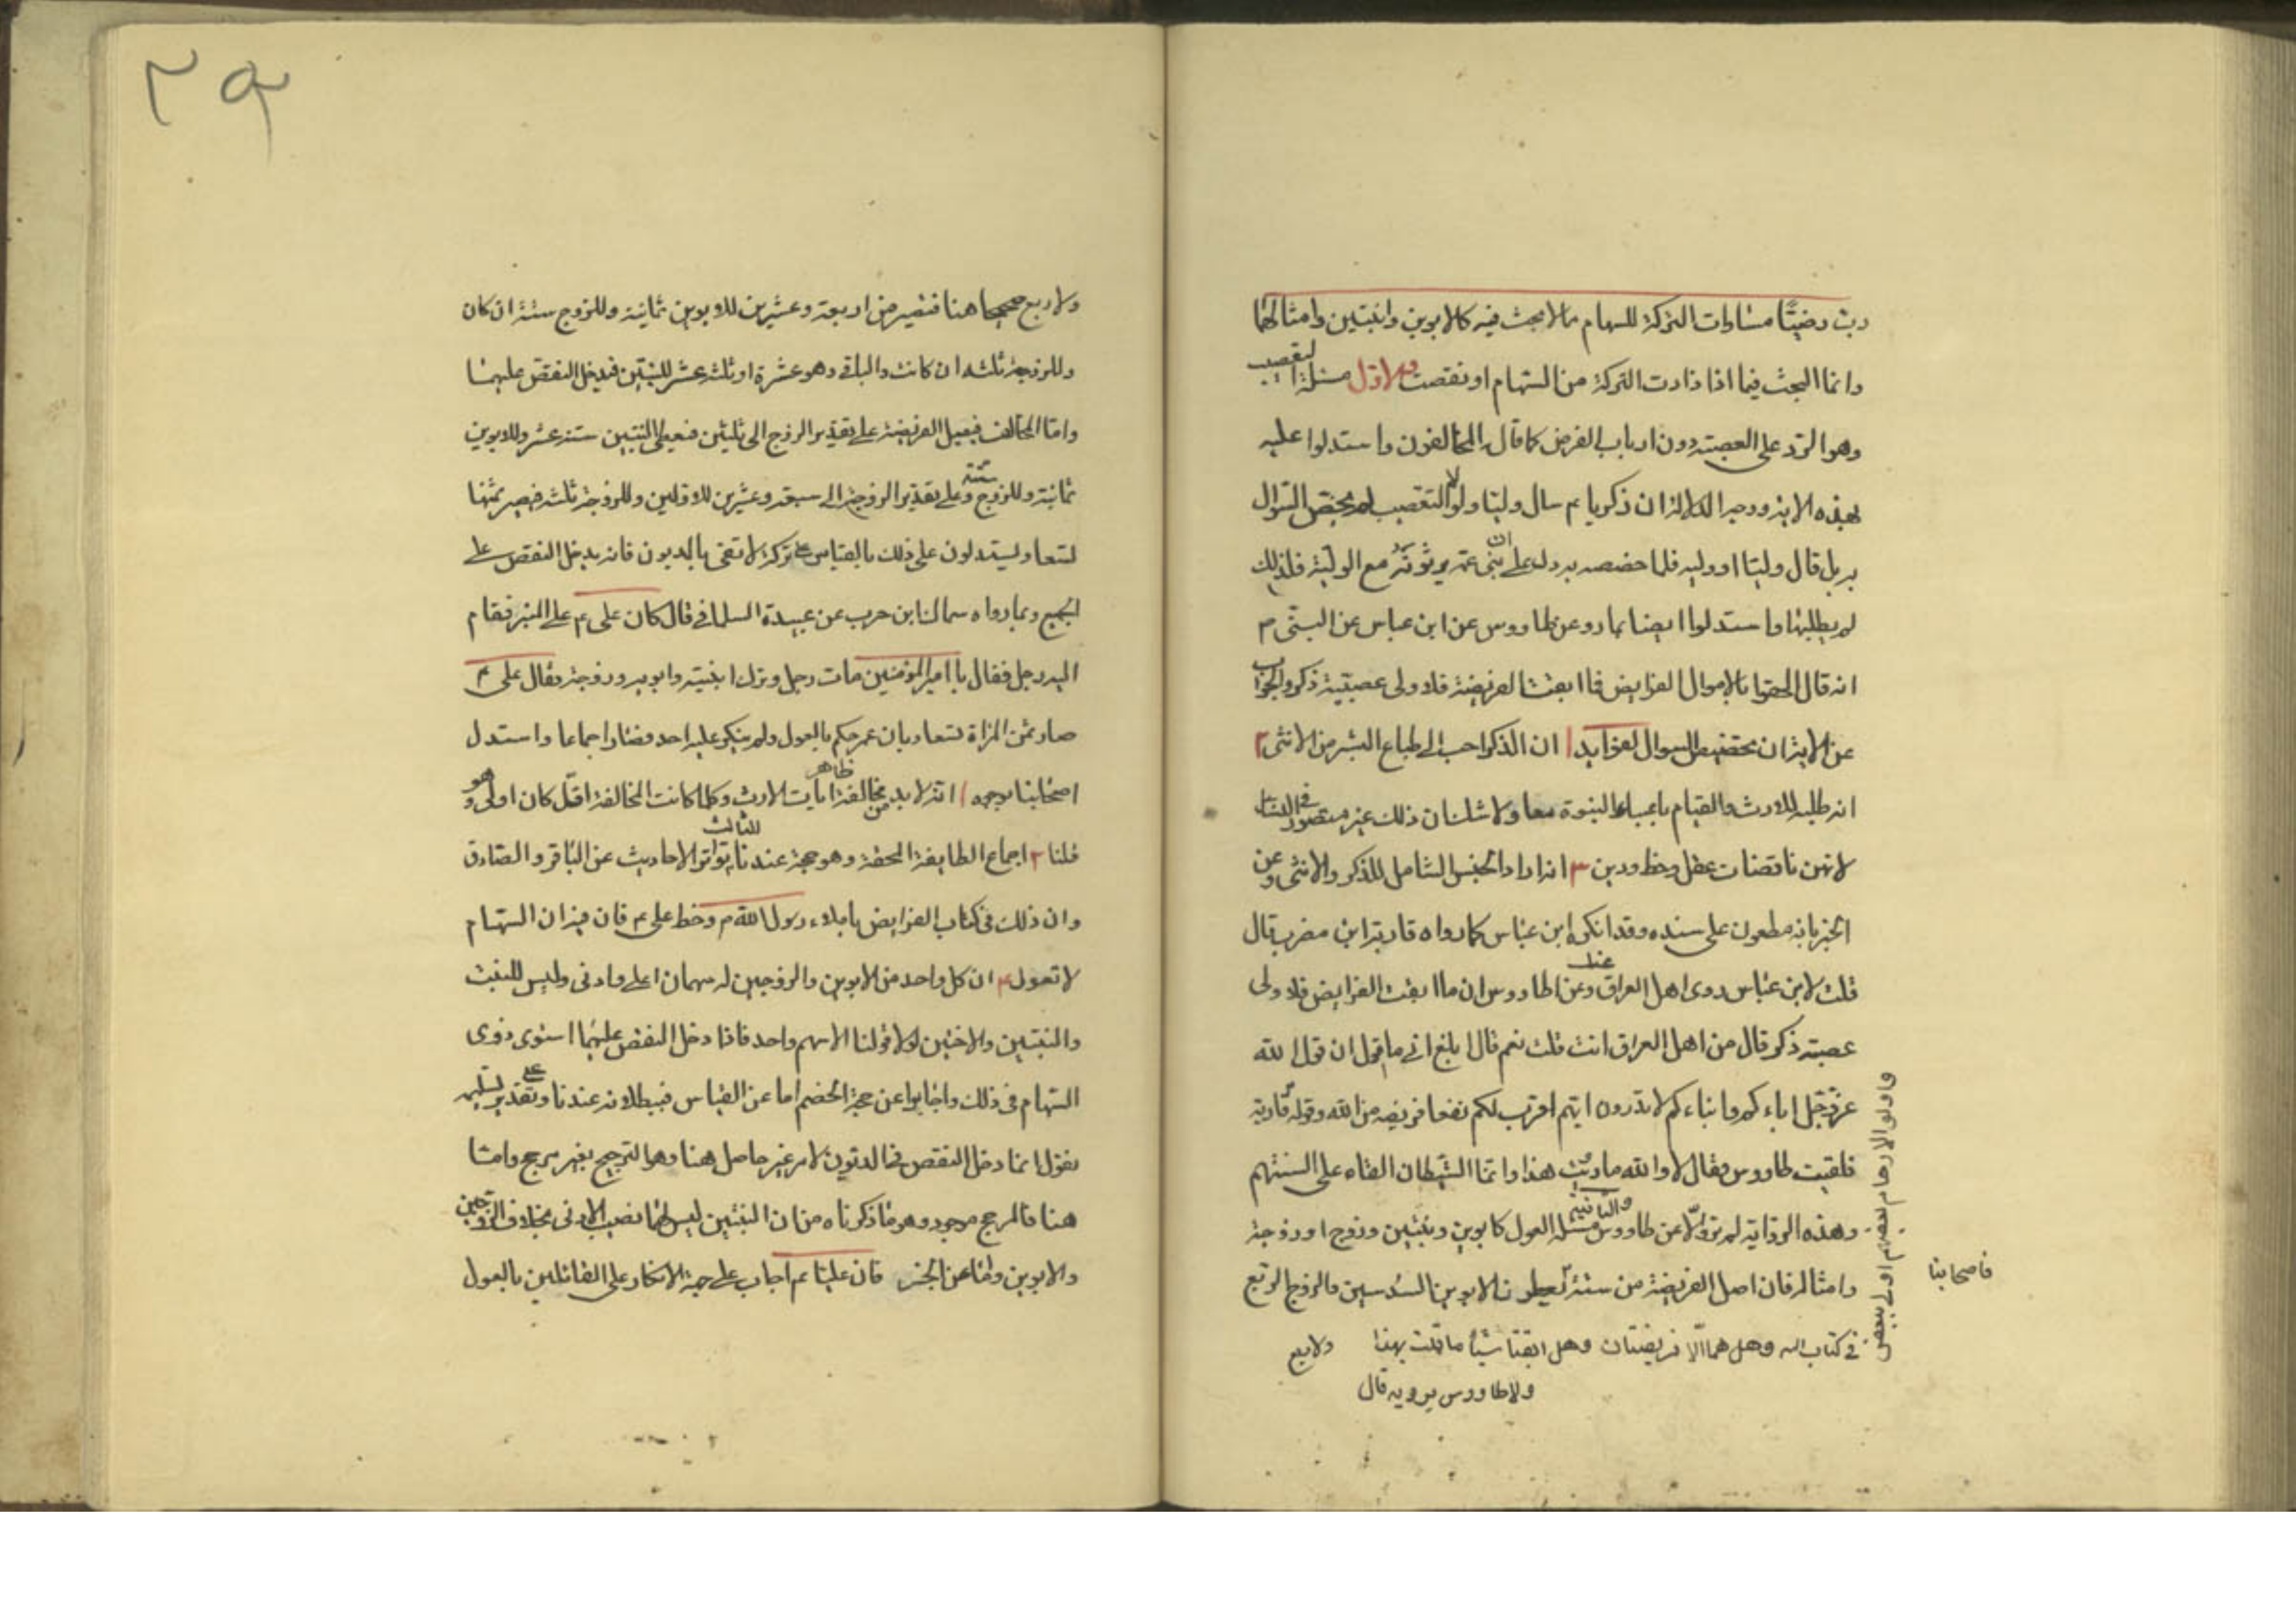 رب رضيًّا مساوات التركة للسهام مالا بحث فيه كالابوين وابنتين وامثالهما
وانما البحث فيما اذا زادت التركة من السهام او نقصت فالاول مسئلة التعصيب
وهو الرد على العصبة دون ارباب الفرض كما قال المخالفون واستدلوا عليه
بهذه الاية ووجه الدلالة ان زكريا ع سال وليّا ولولا التعصيب لم يختص السؤال
به بل قال وليّا او ولية فلما خصصه به دل على ان بنى عمه يرثونه مع الولية فلذلك
لم يطلبها واستدلوا ايضا بما رووعن طاووس عن ابن عباس عن النبى ص
انه قال الحقوا بالاموال الفرايض فما ابقت الفريضة فلاولى عصبة ذكر والجواب
عن الاية ان تخصيص السوال لفوايد ١ ان الذكر احب الى طباع البشر من الانثى ٢
انه طلبه للارث والقيام باعباء النبوة معا ولا شك ان ذلك غير متصور في النساء
لانهن ناقصات عقل وحظ ودين ٣ انه اراد الجنس الشامل للذكر والانثى وعن
الخبر بانه مطعون على سنده وقد انكره ابن عباس كما رواه قاربة ابن مضرب قال
قلت لابن عباس روى اهل العراق عنك وعن طاووس ان ما ابقت الفرايض فلاولى
عصبة ذكر قال من اهل العراق انت قلت نعم قال ابلغ انى ما قول ان قول الله
عز وجل اباءكم وابناءكم لا تدرون ايهم اقرب لكم نفعا فريضه من الله وقوله قاربة
فلقيت طاووس فقال لا والله ما رويت هذا وانما الشيطان القاه على السنتهم
وهذه الرواية لم ترو الا عن طاووس والثانية مسئلة العول كابوين وبنتين وزوج او زوجة
وامثاله فان اصل الفريضة من ستة يعطون الابوين السدسين والزوج الربع
واولو الارحام بعضهم اولى ببعض
في كتاب الله وهل هما الا فريضتان وهل ابقتا شيأ ما قلت بهذا ولا ربع
ولا طاووس يرويه قال
فاصحابنا
٣٩
ولا ربع صحيحا هنا فتصير من اربعة وعشرين للابوين ثمانية وللزوج ستة ان كان
وللزوجة ثلثه ان كانت والباقى وهو عشرة او ثلثة عشر للبنتين فيدخل النقص عليهما
واما المخالف فيعيل الفريضة على تقدير الزوج الى ثلثين فيعطى البنتين ستة عشر وللابوين
ثمانية وللزوج ستة وعلى تقدير الزوجة الى سبعة وعشرين للاولين وللزوجة ثلثه فيصير ثمنها
تسعا ويستدلون على ذلك بالقياس على تركة لا تفى بالديون فانه يدخل النقص على
الجميع وبما رواه سماك ابن حرب عن عبيدة السلمانى قال كان على ع على المنبر فقام
اليه رجل فقال يا امير المؤمنين مات رجل وترك ابنتيه وابويه وزوجة فقال على ع
صار ثمن المراة تسعا وبان عمر حكم بالعول ولم ينكر عليه احد فصار اجماعا واستدل
اصحابنا بوجوه ١ انه لا بد من مخالفة ظاهر ايات الارث وكلما كانت المخالفة اقل كان اولى وهو
قلنا ٢ اجماع الطايفة المحقة وهو حجة عندنا الثالث تواتر الاحاديث عن الباقر والصادق
وان ذلك فى كتاب الفرايض باملاء رسول الله ص وخط على ع فان فيه ان السهام
لا تعول ٤ ان كل واحد من الابوين والزوجين له سهمان اعلى وادنى وليس للبنت
والبنتين والاختين لولا قولنا الا سهم واحد فاذا دخل النقص عليهما استوى ذوى
السهام فى ذلك واجابوا عن حجة الخصم اما عن القياس فببطلانه عندنا وعلى تقدير تسليمه
نقول انما دخل النقص فى الديون لامر غير حاصل هنا وهو الترجيح بغير مرجح واما
هنا فالمرجح موجود وهو ما ذكرناه من ان البنتين ليس لهما نصيب الادنى بخلاف الزوجين
والابوين واما عن الخبر فان عليا ع اجاب على جهة الانكار على القائلين بالعول